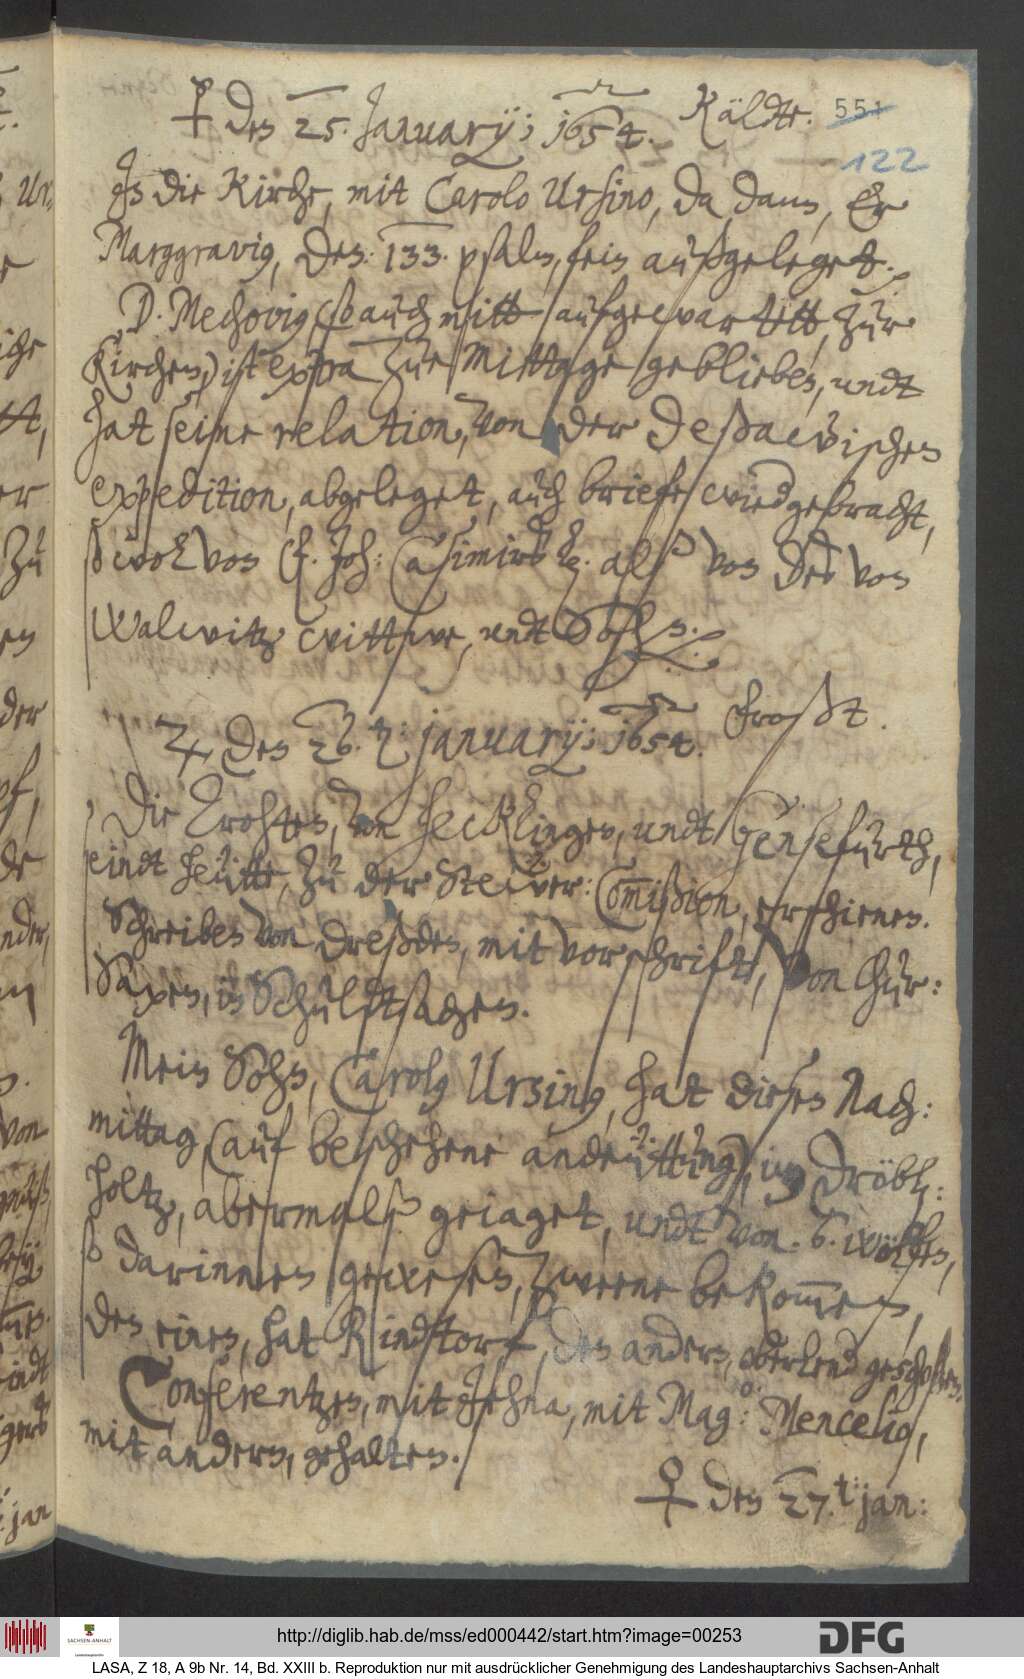 ☿ den 25. January; 1654. Käldte. 551
122
In die Kirche, mit Carolo Ursino, da dann, Er
Marggravig, den: 133. psalm, fein außgeleget.
D. Mechovig (so auch mitt aufgewartett, zur
Kirchen,) ist extra zur Mittage geblieben, undt
hat seine relation, von der Deßawischen
expedition, abgeleget, auch briefe wiedgebracht,
sowol von F. Joh: Casimirs als von der von
Walwitz wittwe, undt Sohn.
♃ den 26. t: january; 1654. Froßt.
Die Trohten, von Hecklingen, undt Genßefurth,
seindt heutte, zu der Stewer: Commißion, erschienen.
Schreiben von Dreßden, mit vorschrift, von Chur:
Saxen, in Schuldtsachen.
Mein Sohn, Carolg Ursing, hat diesen Nach:
mittag, (auf beschehene andeüttung) im Dröbl:
holtz, abermalß geiaget, undt von 6. wölfen,
so darinnen gewesen, zweene bekommen,
den einen, hat Rindtorf, den andern, oberlend geschoßen.
Conferentzen, mit Jehna, mit Mag:o: Mencelig,
mit andern, gehalten.
♀ den 27.t: jan:
http://diglib.hab.de/mss/ed000442/start.htm?image=00253
SACHSEN-ANHALT
DFG
LASA, Z 18, A 9b Nr. 14, Bd. XXIII b. Reproduktion nur mit ausdrücklicher Genehmigung des Landeshauptarchivs Sachsen-Anhalt